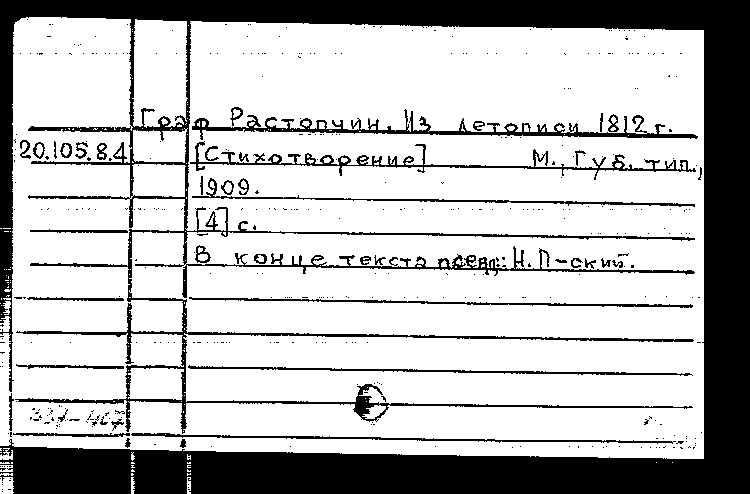 Граф Растопчин. Из летописи 1812 г.
20.105.8.4 [Стихотворение] М., Губ. тип.,
1909.
[4] с.
В конце текста псевд.: Н. П-ский.
337-467